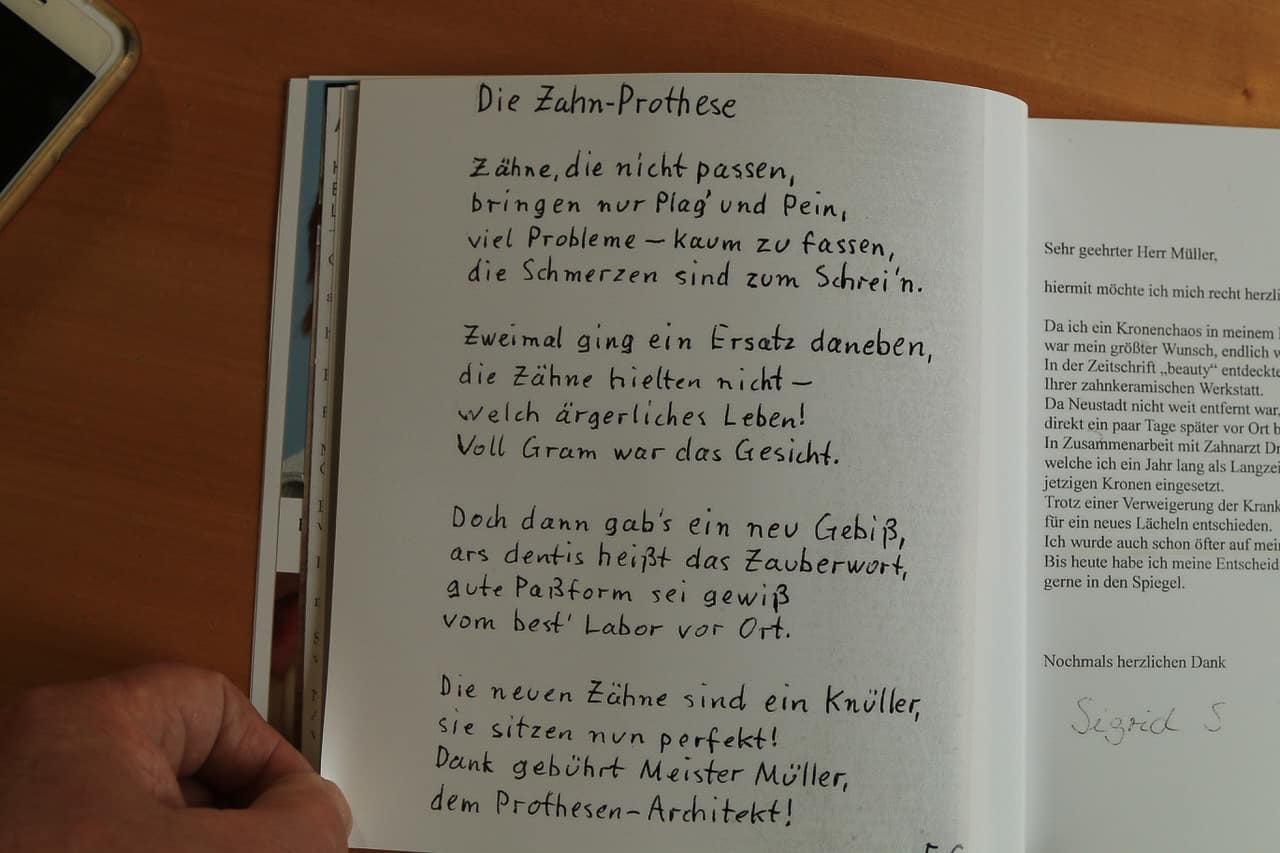 Die Zahn-Prothese
Zähne, die nicht passen,
bringen nur Plag' und Pein,
viel Probleme – kaum zu fassen,
die Schmerzen sind zum Schrei'n.
Zweimal ging ein Ersatz daneben,
die Zähne hielten nicht –
welch ärgerliches Leben!
Voll Gram war das Gesicht.
Doch dann gab's ein neu Gebiß,
ars dentis heißt das Zauberwort,
gute Paßform sei gewiß
vom best' Labor vor Ort.
Die neuen Zähne sind ein Knüller,
sie sitzen nun perfekt!
Dank gebührt Meister Müller,
dem Prothesen-Architekt!
Sehr geehrter Herr Müller,
hiermit möchte ich mich recht
Da ich ein Kronenchaos in meinem
war mein größter Wunsch, endlich
In der Zeitschrift „beauty“
Ihrer zahnkeramischen Werkstatt.
Da Neustadt nicht weit entfernt war,
direkt ein paar Tage später vor Ort
In Zusammenarbeit mit Zahnarzt
welche ich ein Jahr lang als
jetzigen Kronen eingesetzt.
Trotz einer Verweigerung der
für ein neues Lächeln entschieden.
Ich wurde auch schon öfter auf
Bis heute habe ich meine
gerne in den Spiegel.
Nochmals herzlichen Dank
Sigrid S